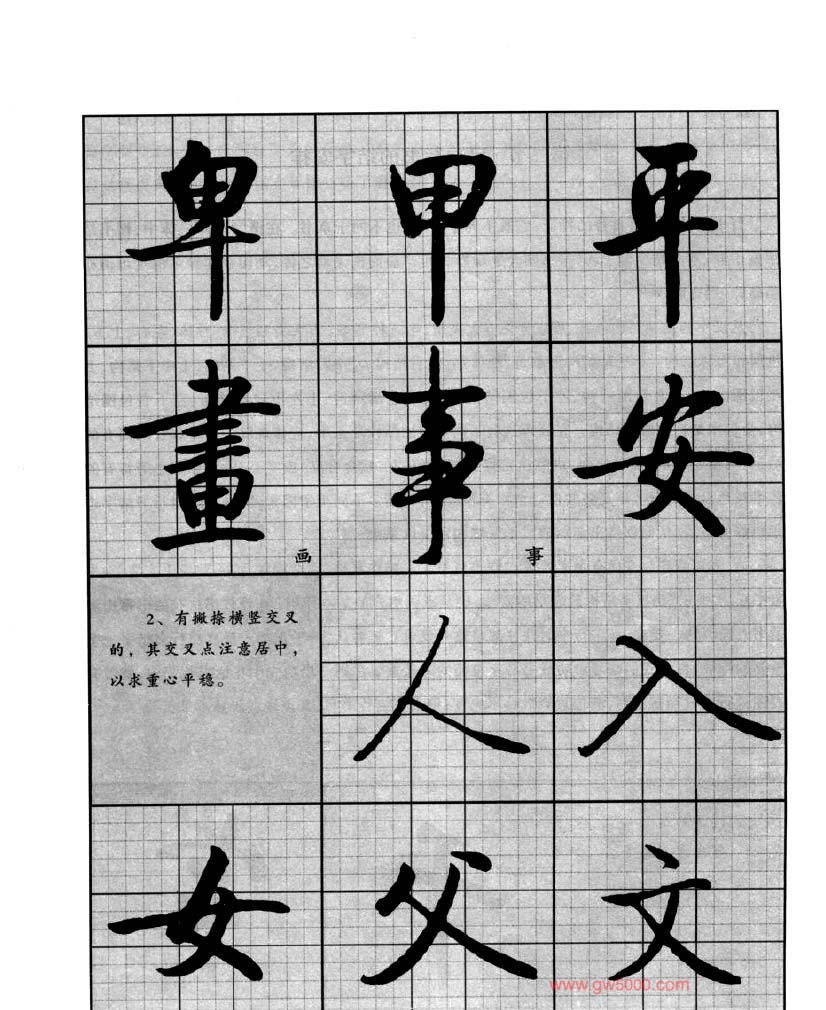 卑 甲 平
畫 事 安
画 事
2、有撇捺横竖交叉
的，其交叉点注意居中，
以求重心平稳。
人 入
女 父 文
www.gw5000.com